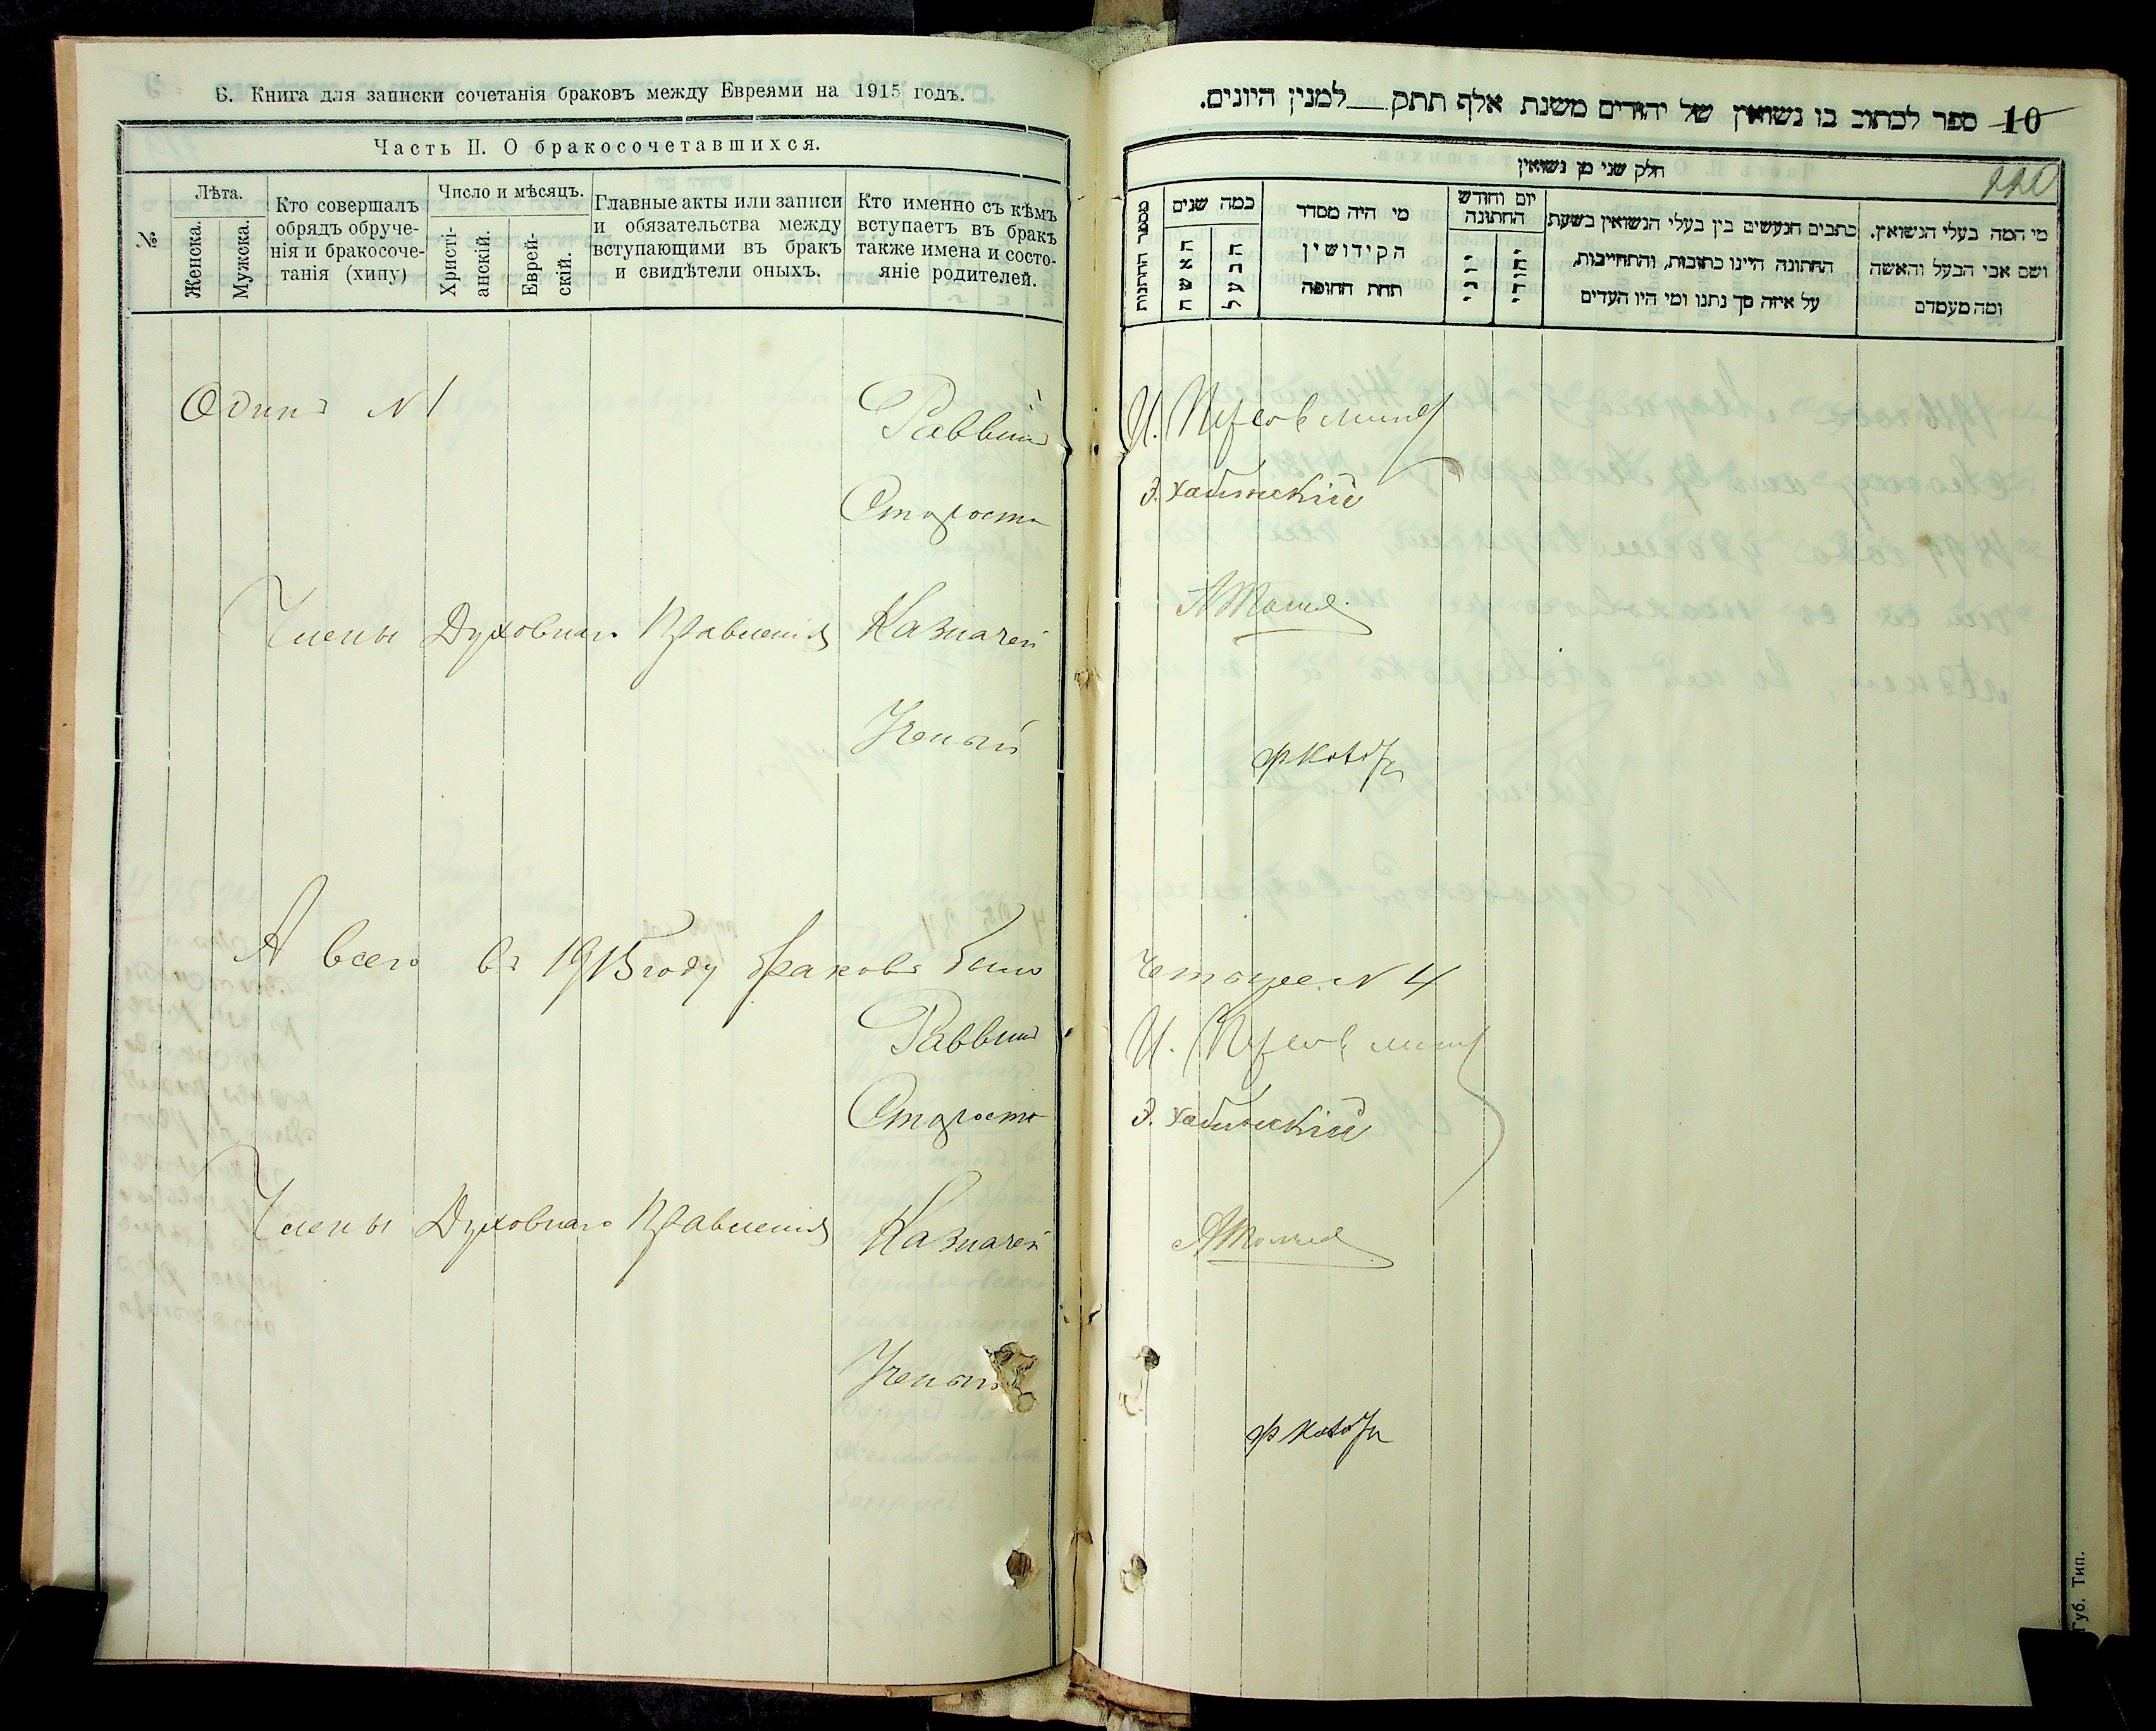 Б. Книга для записки сочетанія браковъ между Евреями на 1915 годъ.
Часть II. О бракосочетавшихся.
№
Лѣта.
Женска.
Мужска.
Кто совершалъ
обрядъ обруче-
нія и бракосоче-
танія (хипу)
Число и мѣсяцъ.
Христі-
анскій.
Еврей-
скій.
Главные акты или записи
и обязательства между
вступающими въ бракъ
и свидѣтели оныхъ.
Кто именно съ кѣмъ
вступаетъ въ бракъ
также имена и состо-
яніе родителей.
Одинъ №1
Раввинъ
Староста
Члены Духовнаго Правленія Казначей
Ученый
А всего въ 1915 году браковъ было
Раввинъ
Староста
Члены Духовнаго Правленія Казначей
Ученый
ספר לכתוב בו נשואין של יהודים משנת אלף תתק__למנין היונים. 10
חלק שני מן נשואין
מספר החתונות
כמה שנים
האשה
הבעל
מי היה מסדר
הקידושין
תחת החופה
יום וחודש
החתונה
יוני
יהודי
כתבים הנעשים בין בעלי הנשואין בשעת
החתונה היינו כתובות, והתחייבות,
על איזה סך נתנו ומי היו העדים
מי המה בעלי הנשואין.
ושם אבי הבעל והאשה
ומה מעמדם
И.
Э.
четыре №4
И.
Э.
Губ. Тип.